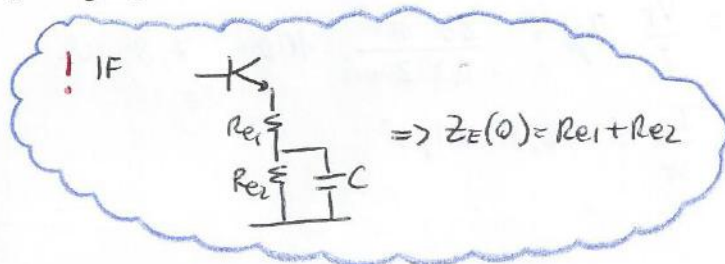 ! IF
Re1
Re2
C
=> ZE(0) = Re1 + Re2